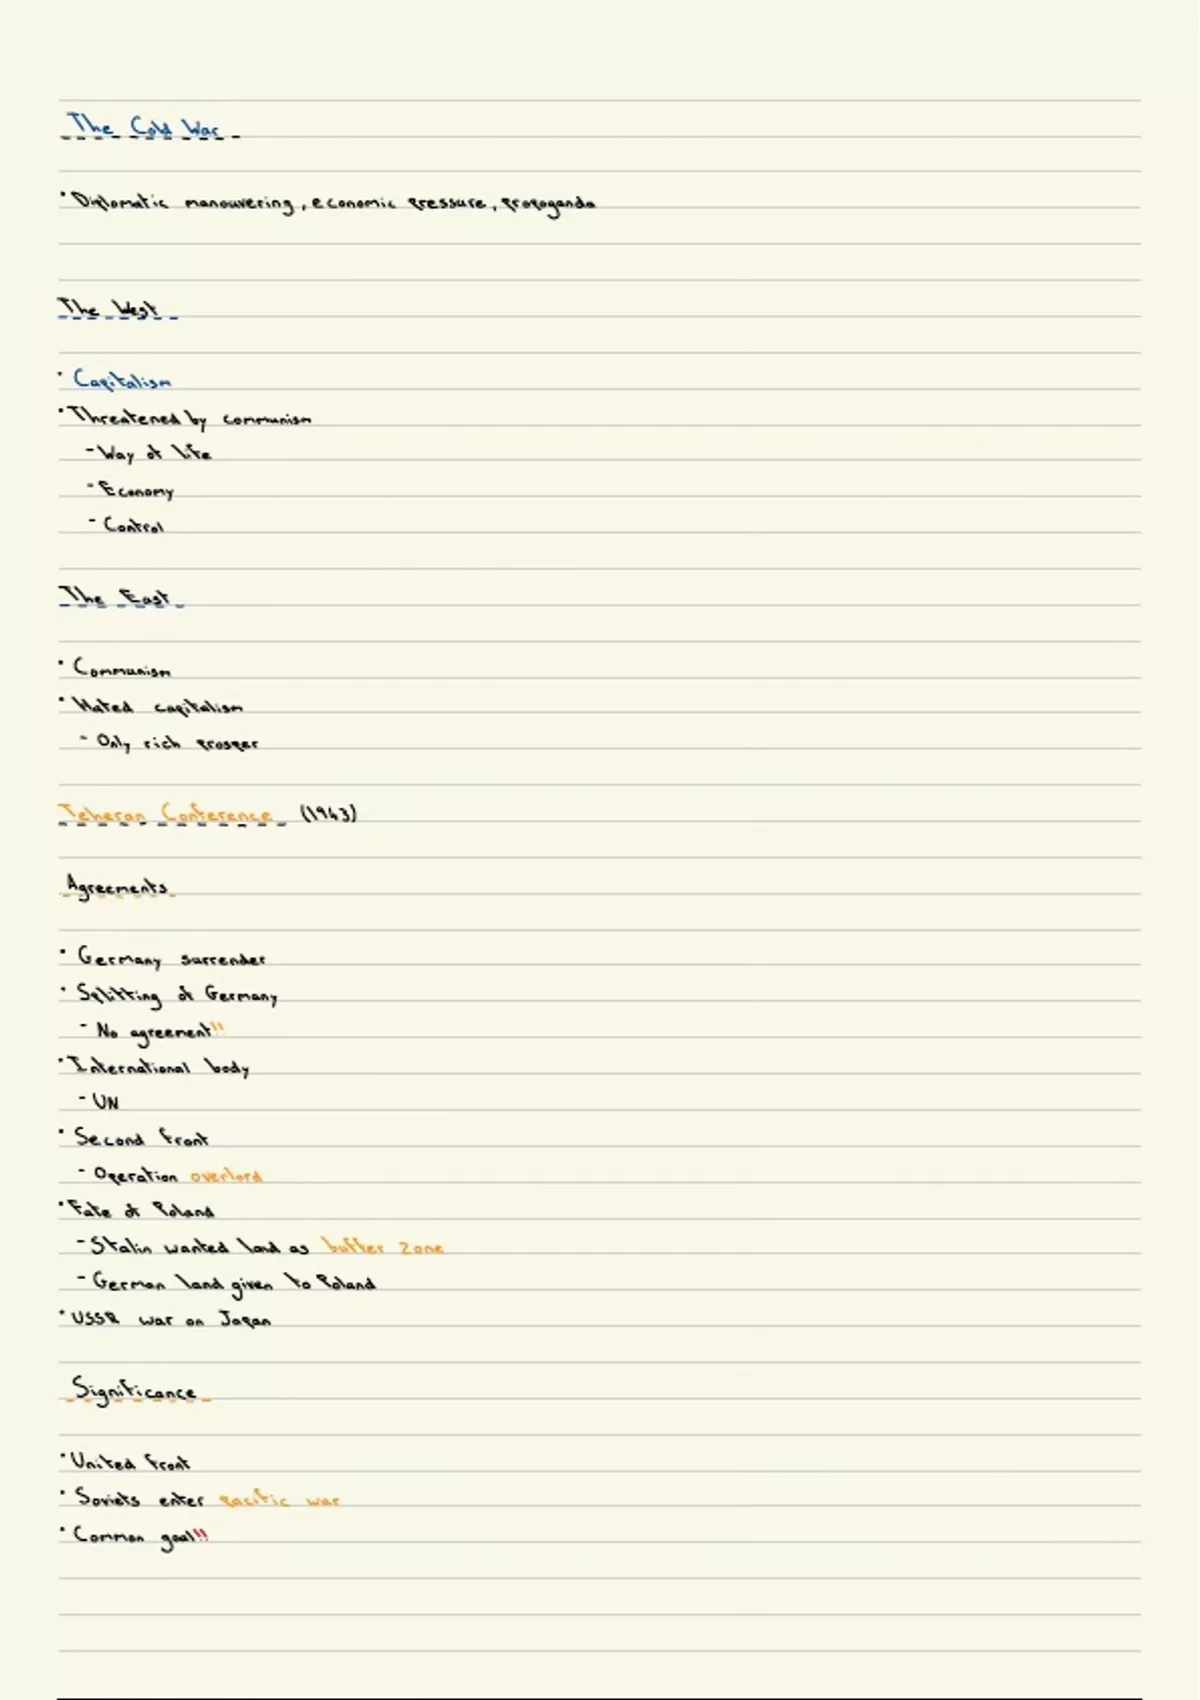 The Cold War
• Diplomatic manouvering, economic pressure, propoganda
The West
• Capitalism
• Threatened by communism
- Way of life
- Economy
- Control
The East
• Communism
• Hated capitalism
- Only rich prosper
Teheran Conference (1943)
Agreements
• Germany surrender
• Splitting of Germany
- No agreement!!
• International body
- UN
• Second front
- Operation overlord
• Fate of Poland
- Stalin wanted land as buffer zone
- German land given to Poland
• USSR war on Japan
Significance
• United front
• Soviets enter pacific war
• Common goal!!